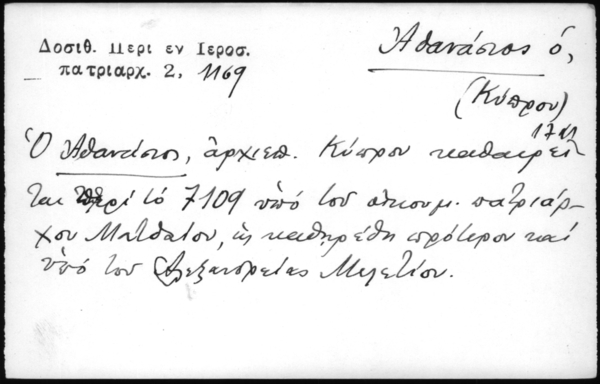 Δοσιθ. Περι εν Ιεροσ.
πατριαρχ. 2, 1169
Ἀθανάσιος ὁ,
(Κύπρου)
Ὁ Ἀθανάσιος, ἀρχιεπ. Κύπρου καθαιρεῖ-
ται περί τό 7109 ὑπό τοῦ οἰκουμ. πατριάρ-
χου Ματθαίου, ὡς καθῃρέθη πρότερον καί
ὑπό τοῦ Ἀλεξανδρείας Μελετίου.